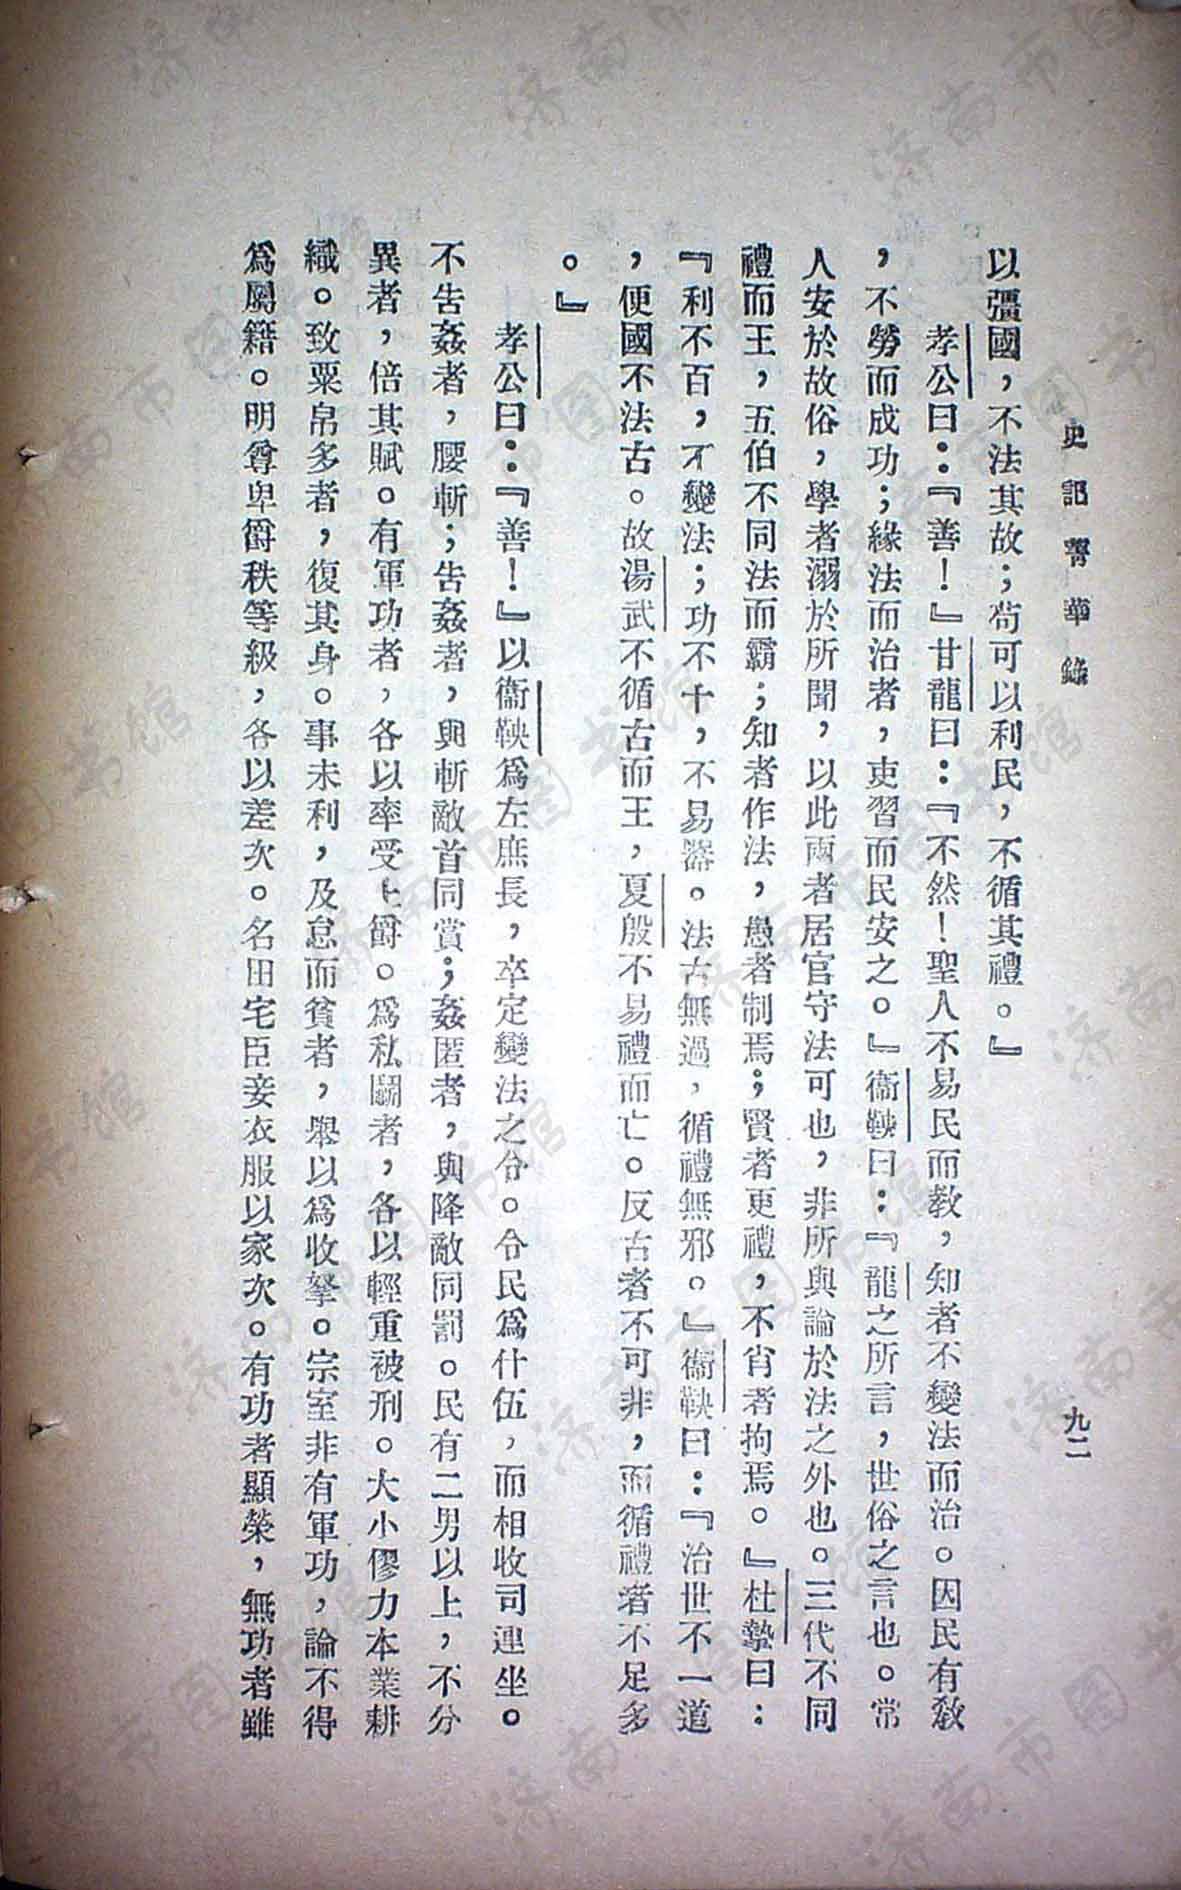 史記菁華錄
九二
以彊國，不法其故；苟可以利民，不循其禮。』
孝公曰：『善！』甘龍曰：『不然！聖人不易民而教，知者不變法而治。因民有教
，不勞而成功；緣法而治者，吏習而民安之。』衞鞅曰：『龍之所言，世俗之言也。常
人安於故俗，學者溺於所聞，以此兩者居官守法可也，非所與論於法之外也。三代不同
禮而王，五伯不同法而霸；知者作法，愚者制焉；賢者更禮，不肖者拘焉。』杜摯曰：
『利不百，不變法；功不十，不易器。法古無過，循禮無邪。』衞鞅曰：『治世不一道
，便國不法古。故湯武不循古而王，夏殷不易禮而亡。反古者不可非，而循禮者不足多
。』
孝公曰：『善！』以衞鞅爲左庶長，卒定變法之令。令民爲什伍，而相收司連坐。
不告姦者，腰斬；告姦者，與斬敵首同賞；姦匿者，與降敵同罰。民有二男以上，不分
異者，倍其賦。有軍功者，各以率受上爵。爲私鬭者，各以輕重被刑。大小僇力本業耕
織。致粟帛多者，復其身。事末利，及怠而貧者，舉以爲收孥。宗室非有軍功，論不得
爲屬籍。明尊卑爵秩等級，各以差次。名田宅臣妾衣服以家次。有功者顯榮，無功者雖
济南市图书馆